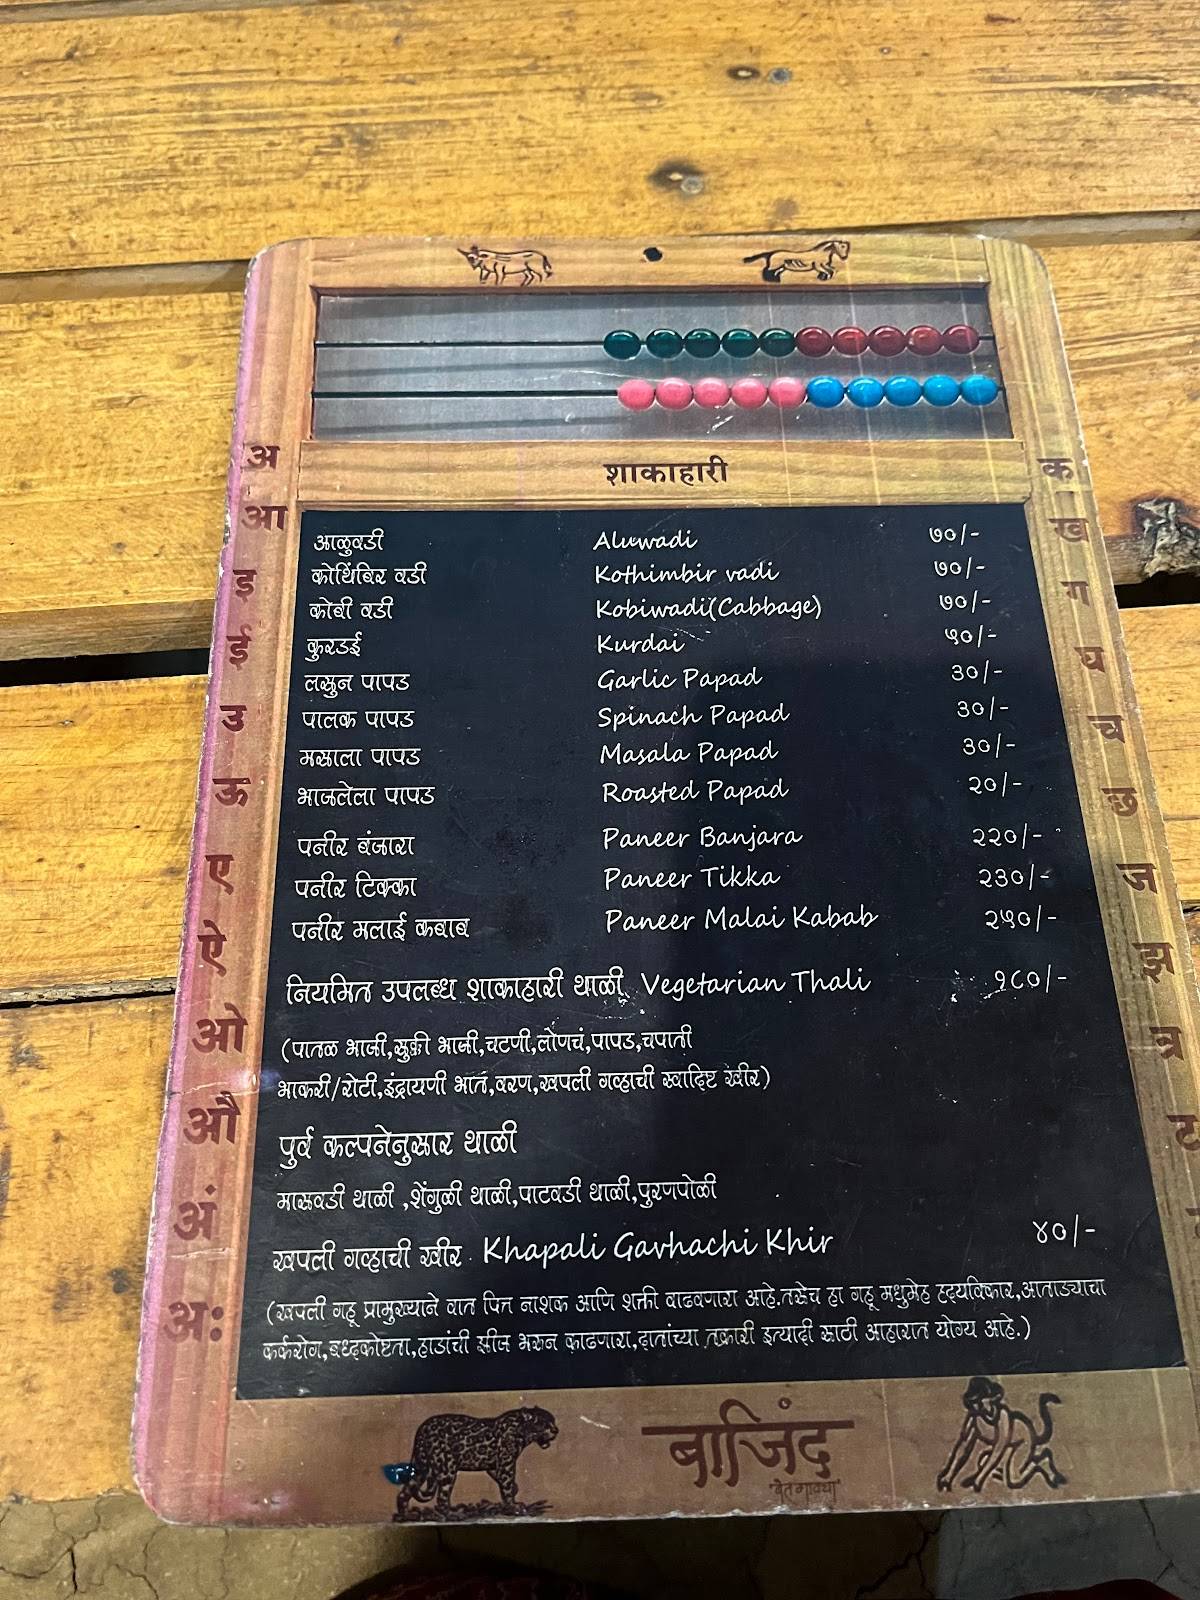 शाकाहारी
अ
आ
इ
ई
उ
ऊ
ए
ऐ
ओ
औ
अं
अः
आळुवडी Aluwadi ७०/-
कोथिंबिर वडी Kothimbir vadi ७०/-
कोबी वडी Kobiwadi(Cabbage) ७०/-
कुरडई Kurdai ५०/-
लसुन पापड Garlic Papad ३०/-
पालक पापड Spinach Papad ३०/-
मसाला पापड Masala Papad ३०/-
भाजलेला पापड Roasted Papad २०/-
पनीर बंजारा Paneer Banjara २२०/-
पनीर टिक्का Paneer Tikka २३०/-
पनीर मलाई कबाब Paneer Malai Kabab २५०/-
नियमित उपलब्ध शाकाहारी थाळी Vegetarian Thali १८०/-
(पातळ भाजी,सुक्की भाजी,चटणी,लोणचं,पापड,चपाती
भाकरी/रोटी,इंद्रायणी भात,वरण,खपली गव्हाची स्वादिष्ट खीर)
पुर्व कल्पनेनुसार थाळी
मासवडी थाळी ,शेंगुळी थाळी,पाटवडी थाळी,पुरणपोळी
खपली गव्हाची खीर Khapali Gavhachi Khir ४०/-
(खपली गहू प्रामुख्याने वात पित्त नाशक आणि शक्ती वाढवणारा आहे.तसेच हा गहू मधुमेह हृदयविकार,आताड्याचा
कर्करोग,बध्दकोष्टता,हाडांची झीज भरुन काढणारा,दातांच्या तक्रारी इत्यादी साठी आहारात योग्य आहे.)
क
ख
ग
घ
च
छ
ज
झ
त्र
ट
बाजिंद